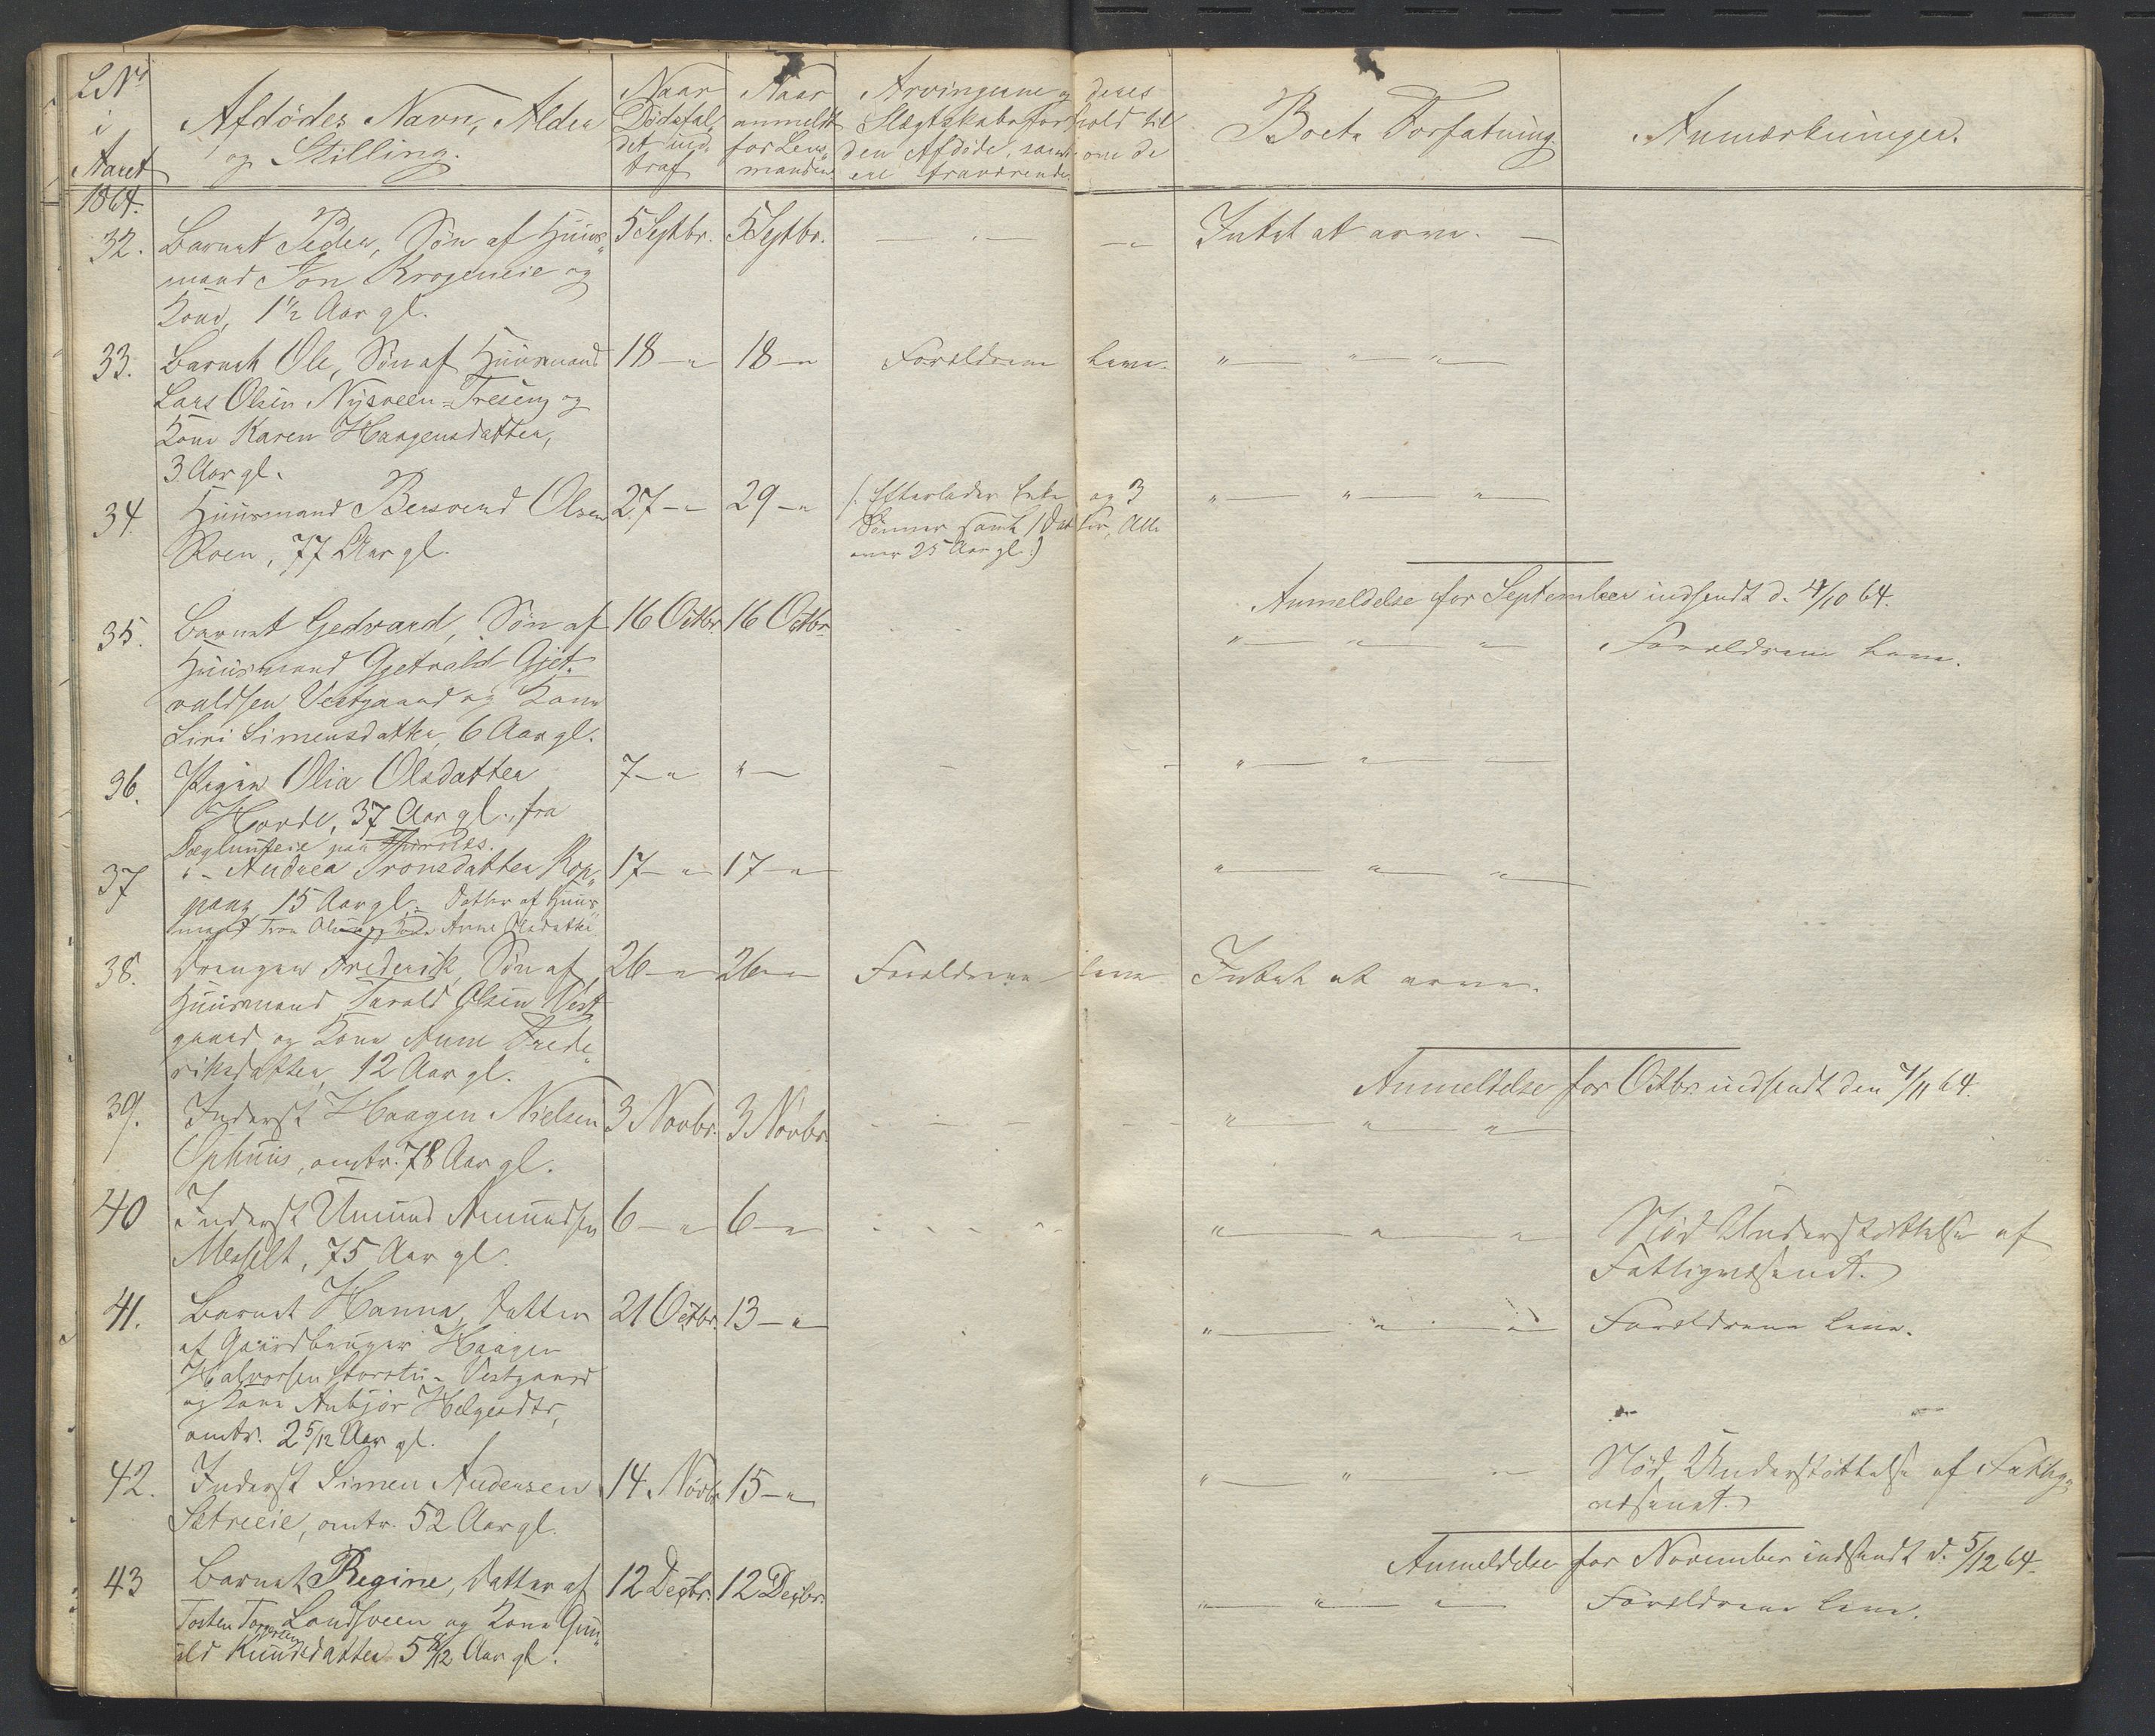 LNr
i
Aaret
Afdødes Navn, Alder
og Stilling.
Naar
Dødsfal„
det ind„
traf
Naar
anmeldt
for Lens„
manden.
Arvingerne og deres
Slægtskabsforhold til
den Afdøde, samt om de
ere fraværende.
Boets Forfatning.
Anmærkninger.
1864.
32. Barnet Peder, Søn af Huus„ 5 Septbr. 5 Septbr. Intet at arve.
mand Jon Krogeneie og
Kone, 1½ Aar gl.
33. Barnet Ole, Søn af Huusmand 18 — " 18 — " Forældrene leve. " — " — " —
Lars Olsen Nysveen-Treseng og
Kone Karen Haagensdatter,
3 Aar gl.
34. Huusmand Bersvend Olsen 27 — " 29 — " (: Efterlader Enke og 3 " — " — " —
Roen, 77 Aar gl. Sønner samt 1 Datter, Alle
over 25 Aar gl. :)
Anmeldelse for September indsendt d. 4/10 64.
35. Barnet Gedvard, Søn af 16 Octbr. 16 Octbr. " — " — " — Forældrene leve.
Huusmand Gjetvald Gjet„
valdsen Vestgaard og Kone
Siri Simensdatter, 6 Aar gl.
36. Pigen Olia Olsdatter 7 — " " — " — " —
Horde, 37 Aar gl., fra
paa
37 " - Andrea Tronsdatter Kop„ 17 — " 17 — " " — " — " —
pang 15 Aar gl. Datter af Huus„
mand Tron Olsen og Kone Anne Olsdatter
38. Drengen Frederik, Søn af 26 — " 26 — " Forældrene leve Intet at arve.
Huusmand Tarald Olsen Vest„
gaard og Kone Anne Frede„
riksdatter, 12 Aar gl.
Anmeldelse for Octbr. indsendt den 7/11 64.
39. Inderst Haagen Nielsen 3 Novbr. 3 Novbr. " — " — " —
Ophuus, omtr. 78 Aar gl.
40 Inderst Amund Amundsen 6 — " 6 — " " — " — " Nød Understøttelse af
Messelt, 75 Aar gl. Fattigvæsenet.
41. Barnet Hanna, Datter 21 Octbr. 13 — " " — " — " Forældrene leve.
af Gaardbruger Haagen
Halvorsen Storstu - Vestgaard
og Kone Anbjør Helgesdtr,
omtr. 2 5/12 Aar gl.
42. Inderst Simen Andersen 14. Novbr 15 — " " — " — Nød Understøttelse af Fattig„
Sætreeie, omtr. 52 Aar gl. væsenet.
Anmeldelse for November indsendt d. 5/12 64.
43 Barnet Regine, Datter af 12 Decbr. 12 Decbr. " — " — " — Forældrene leve.
Tosten Torgersen Landsveen og Kone Gun„
ild Knudsdatter 5 Aar gl.